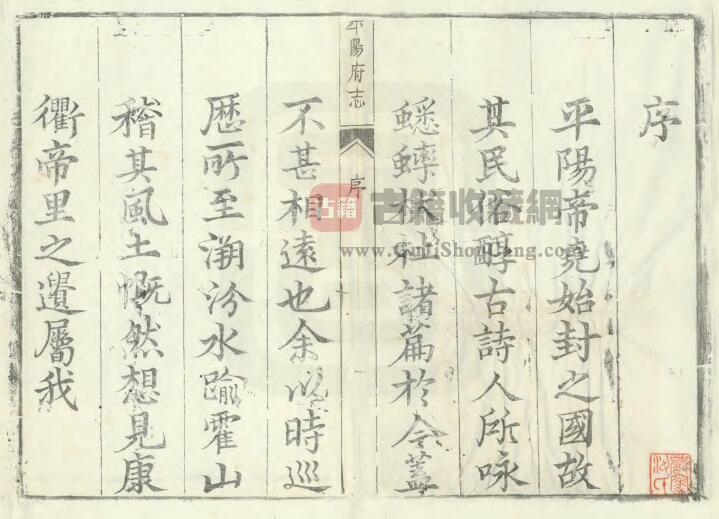 序
平陽帝堯始封之國故
其民俗醇古詩人所咏
蟋蟀杕杜諸篇於今蓋
平陽府志
序
不甚相遠也余以時巡
歷所至溯汾水踰霍山
稽其風土慨然想見康
衢帝里之遺屬我
古籍
古籍收藏網
www.GujiShouCang.com